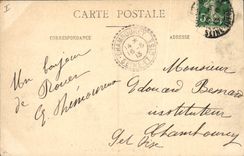 CARTE POSTALE
CORRESPONDANCE
ADRESSE
Un bonjour
de Rouen
Monsieur
Edouard Bernard
instituteur
Chambourcy
Set Oise